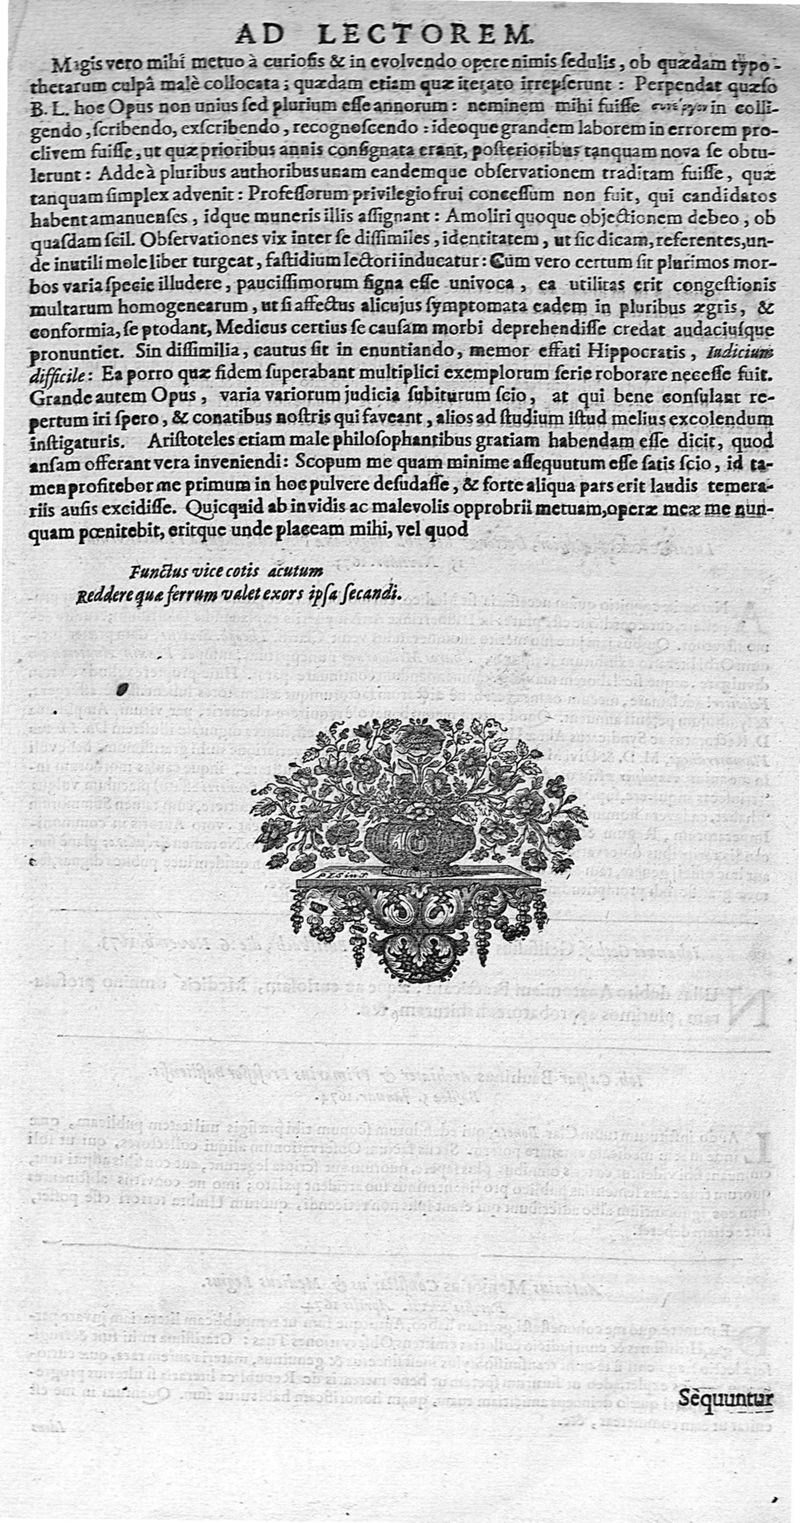 AD LECTOREM.
Magis vero mihi metuo à curiosis & in evolvendo opere nimis sedulis, ob quædam typo-
thetarum culpâ malè collocata; quædam etiam quæ iterato irrepserunt: Perpendat quæso
B. L. hoc Opus non unius sed plurium esse annorum: neminem mihi fuisse συνέργον in colli-
gendo, scribendo, exscribendo, recognoscendo: ideoque grandem laborem in errorem pro-
clivem fuisse, ut quæ prioribus annis consignata erant, posterioribus tanquam nova se obtu-
lerunt: Adde à pluribus authoribus unam eandemque observationem traditam fuisse, quæ
tanquam simplex advenit: Professorum privilegio frui concessum non fuit, qui candidatos
habent amanuenses, idque muneris illis assignant: Amoliri quoque objectionem debeo, ob
quasdam scil. Observationes vix inter se dissimiles, identitatem, ut sic dicam, referentes, un-
de inutili mole liber turgeat, fastidium lectori inducatur: Cum vero certum sit plurimos mor-
bos varia specie illudere, paucissimorum signa esse univoca, ea utilitas erit congestionis
multarum homogenearum, ut si affectus alicujus symptomata eadem in pluribus ægris, &
conformia, se prodant, Medicus certius se causam morbi deprehendisse credat audaciusque
pronuntiet. Sin dissimilia, cautus sit in enuntiando, memor effati Hippocratis, Iudicium
difficile: Ea porro quæ fidem superabant multiplici exemplorum serie roborare necesse fuit.
Grande autem Opus, varia variorum judicia subiturum scio, at qui bene consulant re-
pertum iri spero, & conatibus nostris qui faveant, alios ad studium istud melius excolendum
instigaturis. Aristoteles etiam male philosophantibus gratiam habendam esse dicit, quod
ansam offerant vera inveniendi: Scopum me quam minime assequutum esse satis scio, id ta-
men profitebor me primum in hoc pulvere desudasse, & forte aliqua pars erit laudis temera-
riis ausis excidisse. Quicquid ab invidis ac malevolis opprobrii metuam, operæ meæ me nun-
quam pœnitebit, eritque unde placeam mihi, vel quod
Functus vice cotis acutum
Reddere quæ ferrum valet exors ipsa secandi.
Sequuntur